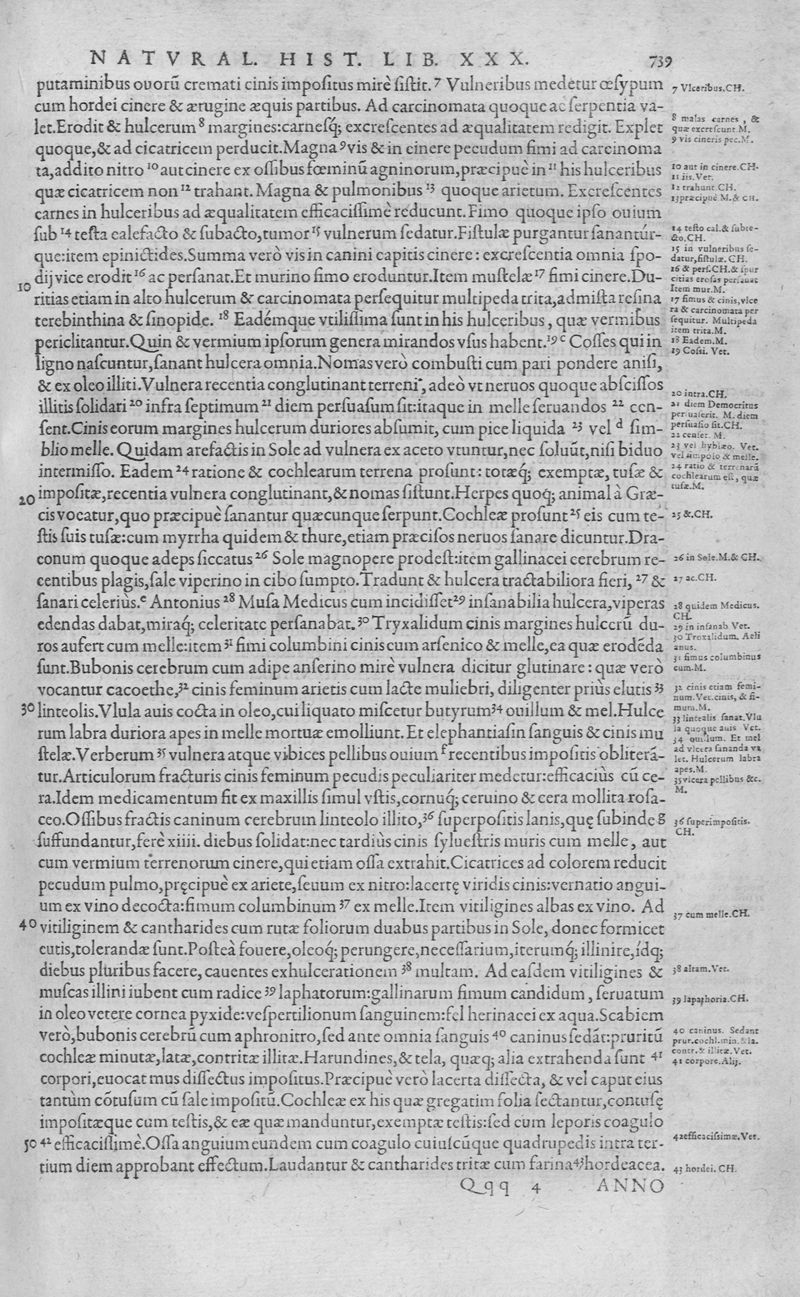 NATVRAL. HIST. LIB. XXX. 739
putaminibus ouorũ cremati cinis impoſitus mirè ſiſtit.7 Vulneribus medetur œſypum
cum hordei cinere & ærugine æquis partibus. Ad carcinomata quoque ac ſerpentia va-
let.Erodit & hulcerum8 margines:carneſq; excreſcentes ad æqualitatem redigit. Explet
quoque,& ad cicatricem perducit.Magna9vis & in cinere pecudum fimi ad carcinoma
ta,addito nitro10aut cinere ex oſſibus fœminũ agninorum,præcipuè in11 his hulceribus
quæ cicatricem non12 trahant. Magna & pulmonibus13 quoque arietum. Excreſcentes
carnes in hulceribus ad æqualitatem efficaciſſimè reducunt.Fimo quoque ipſo ouium
ſub14 teſta calefacto & ſubacto,tumor15 vulnerum ſedatur.Fiſtulæ purgantur ſanantúr-
que:item epinictides.Summa verò vis in canini capitis cinere: excreſcentia omnia ſpo-
10 dij vice erodit16 ac perſanat.Et murino fimo eroduntur.Item muſtelæ17 fimi cinere.Du-
ritias etiam in alto hulcerum & carcinomata perſequitur multipeda trita,admiſta reſina
terebinthina & ſinopide.18 Eadémque vtiliſſima ſunt in his hulceribus, quæ vermibus
periclitantur.Quin & vermium ipſorum genera mirandos vſus habent.19 c Coſſes qui in
ligno naſcuntur,ſanant hulcera omnia.Nomas verò combuſti cum pari pondere aniſi,
& ex oleo illiti.Vulnera recentia conglutinant terreni, adeò vt neruos quoque abſciſſos
illitis ſolidari20 infra ſeptimum21 diem perſuaſum ſit:itaque in melle ſeruandos22 cen-
ſent.Cinis eorum margines hulcerum duriores abſumit, cum pice liquida23 vel d ſim-
blio melle. Quidam arefactis in Sole ad vulnera ex aceto vtuntur,nec ſoluũt,niſi biduo
intermiſſo. Eadem24ratione & cochlearum terrena proſunt: totæq; exemptæ, tuſæ &
20 impoſitæ,recentia vulnera conglutinant,& nomas ſiſtunt.Herpes quoq; animal à Græ-
cis vocatur,quo præcipuè ſanantur quæcunque ſerpunt.Cochleæ proſunt25 eis cum te-
ſtis ſuis tuſæ:cum myrrha quidem & thure,etiam præciſos neruos ſanare dicuntur.Dra-
conum quoque adeps ſiccatus26 Sole magnopere prodeſt:item gallinacei cerebrum re-
centibus plagis,ſale viperino in cibo ſumpto.Tradunt & hulcera tractabiliora fieri,27 &
ſanari celeriùs.e Antonius28 Muſa Medicus cum incidiſſet29 inſanabilia hulcera,viperas
edendas dabat,miraq; celeritate perſanabat.30 Tryxalidum cinis margines hulcerũ du-
ros aufert cum melle:item31 fimi columbini cinis cum arſenico & melle,ea quæ erodẽda
ſunt.Bubonis cerebrum cum adipe anſerino mirè vulnera dicitur glutinare: quæ verò
vocantur cacoethe,32 cinis feminum arietis cum lacte muliebri, diligenter priùs elutis33
30 linteolis.Vlula auis cocta in oleo,cui liquato miſcetur butyrum34 ouillum & mel.Hulce
rum labra duriora apes in melle mortuæ emolliunt.Et elephantiaſin ſanguis & cinis mu
ſtelæ.Verberum35 vulnera atque vibices pellibus ouium f recentibus impoſitis obliterá-
tur.Articulorum fracturis cinis feminum pecudis peculiariter medetur:efficaciùs cũ ce-
ra.Idem medicamentum fit ex maxillis ſimul vſtis,cornuq; ceruino & cera mollita roſa-
ceo.Oſſibus fractis caninum cerebrum linteolo illito,36 ſuperpoſitis lanis,quę ſubinde g
ſuffundantur,ferè xiiii. diebus ſolidat:nec tardiùs cinis ſylueſtris muris cum melle, aut
cum vermium terrenorum cinere,qui etiam oſſa extrahit.Cicatrices ad colorem reducit
pecudum pulmo,pręcipuè ex ariete,ſeuum ex nitro:lacertę viridis cinis:vernatio angui-
um ex vino decocta:fimum columbinum37 ex melle.Item vitiligines albas ex vino. Ad
40 vitiliginem & cantharides cum rutæ foliorum duabus partibus in Sole, donec formicet
cutis,tolerandæ ſunt.Poſteà fouere,oleoq; perungere,neceſſarium,iterumq; illinire,idq;
diebus pluribus facere, cauentes exhulcerationem38 multam. Ad eaſdem vitiligines &
muſcas illini iubent cum radice39 laphatorum:gallinarum fimum candidum, ſeruatum
in oleo vetere cornea pyxide:veſpertilionum ſanguinem:fel herinacei ex aqua.Scabiem
verò,bubonis cerebrũ cum aphronitro,ſed ante omnia ſanguis40 caninus ſedãt:pruritũ
cochleæ minutæ,latæ,contritæ illitæ.Harundines,& tela, quæq; alia extrahenda ſunt41
corpori,euocat mus diſſectus impoſitus.Præcipuè verò lacerta diſſecta, & vel caput eius
tantùm cõtuſum cũ ſale impoſitũ.Cochleæ ex his quæ gregatim folia ſectantur,contuſę
impoſitæque cum teſtis,& eæ quæ manduntur,exemptæ teſtis:ſed cum leporis coagulo
50 42 efficaciſſimè.Oſſa anguium eundem cum coagulo cuiuſcũque quadrupedis intra ter-
tium diem approbant effectum.Laudantur & cantharides tritæ cum farina43hordeacea.
Qqq 4 ANNO
7 Vlceribus.CH.
8 malas carnes, &
quæ excreſcunt.M.
9 vis cineris pec.M.
10 aut in cinere.CH.
11 iis.Vet.
12 trahunt.CH.
13præcipuè M.& CH.
14 teſto cal.& ſubte-
cto.CH.
15 in vulneribus ſe-
datur,fiſtulæ. CH.
16 & perſ.CH.& ſpur
citias eroſas perſanat
Item mur.M.
17 fimus & cinis,vlce
ra & carcinomata per
ſequitur. Multipeda
item trita.M.
18 Eadem.M.
19 Coſsi. Vet.
20 intra.CH.
21 diem Democritus
perſuaſerit. M. diem
perſuaſio ſit.CH.
22 cenſet. M.
23 vel hyblæo. Vet.
vel ſimpolo & melle.
24 ratio & terrenarũ
cochlearum eſt, quæ
tuſæ.M.
25 &.CH.
26 in Sole.M.& CH.
27 ac.CH.
28 quidem Medicus.
CH.
29 in inſanab. Vet.
30 Troxalidum. Aeli
anus.
31 fimus columbinus
cum.M.
32 cinis etiam femi-
num.Vet.cinis, & fi-
mum.M.
33 lintealis ſanat.Vlu
la quoque auis Vet.
34 ouillum. Et mel
ad vlcera ſananda va
let. Hulcerum labra
apes.M.
35 vicera pellibus &c.
M.
36 ſuperimpoſitis.
CH.
37 cum melle.CH.
38 altam.Vet.
39 lapathoria.CH.
40 caninus. Sedant
prur.cochl.min.& la.
contr.& illitæ.Vet.
41 corpore.Alij.
42efficaciſsimæ.Vet.
43 hordei. CH.